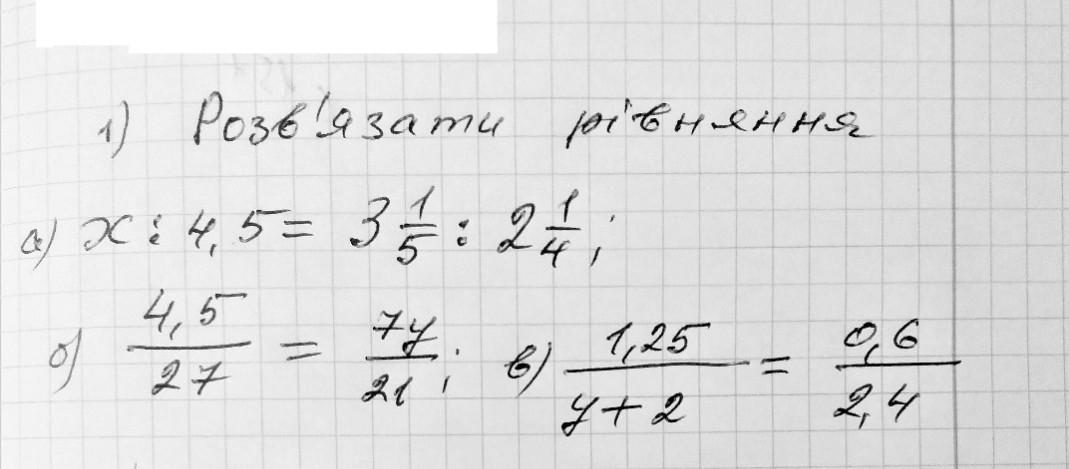 1) Розв'язати рівняння
а) x : 4,5 = 3 1/5 : 2 1/4;
б) 4,5/27 = 7y/21; в) 1,25/(y+2) = 0,6/2,4